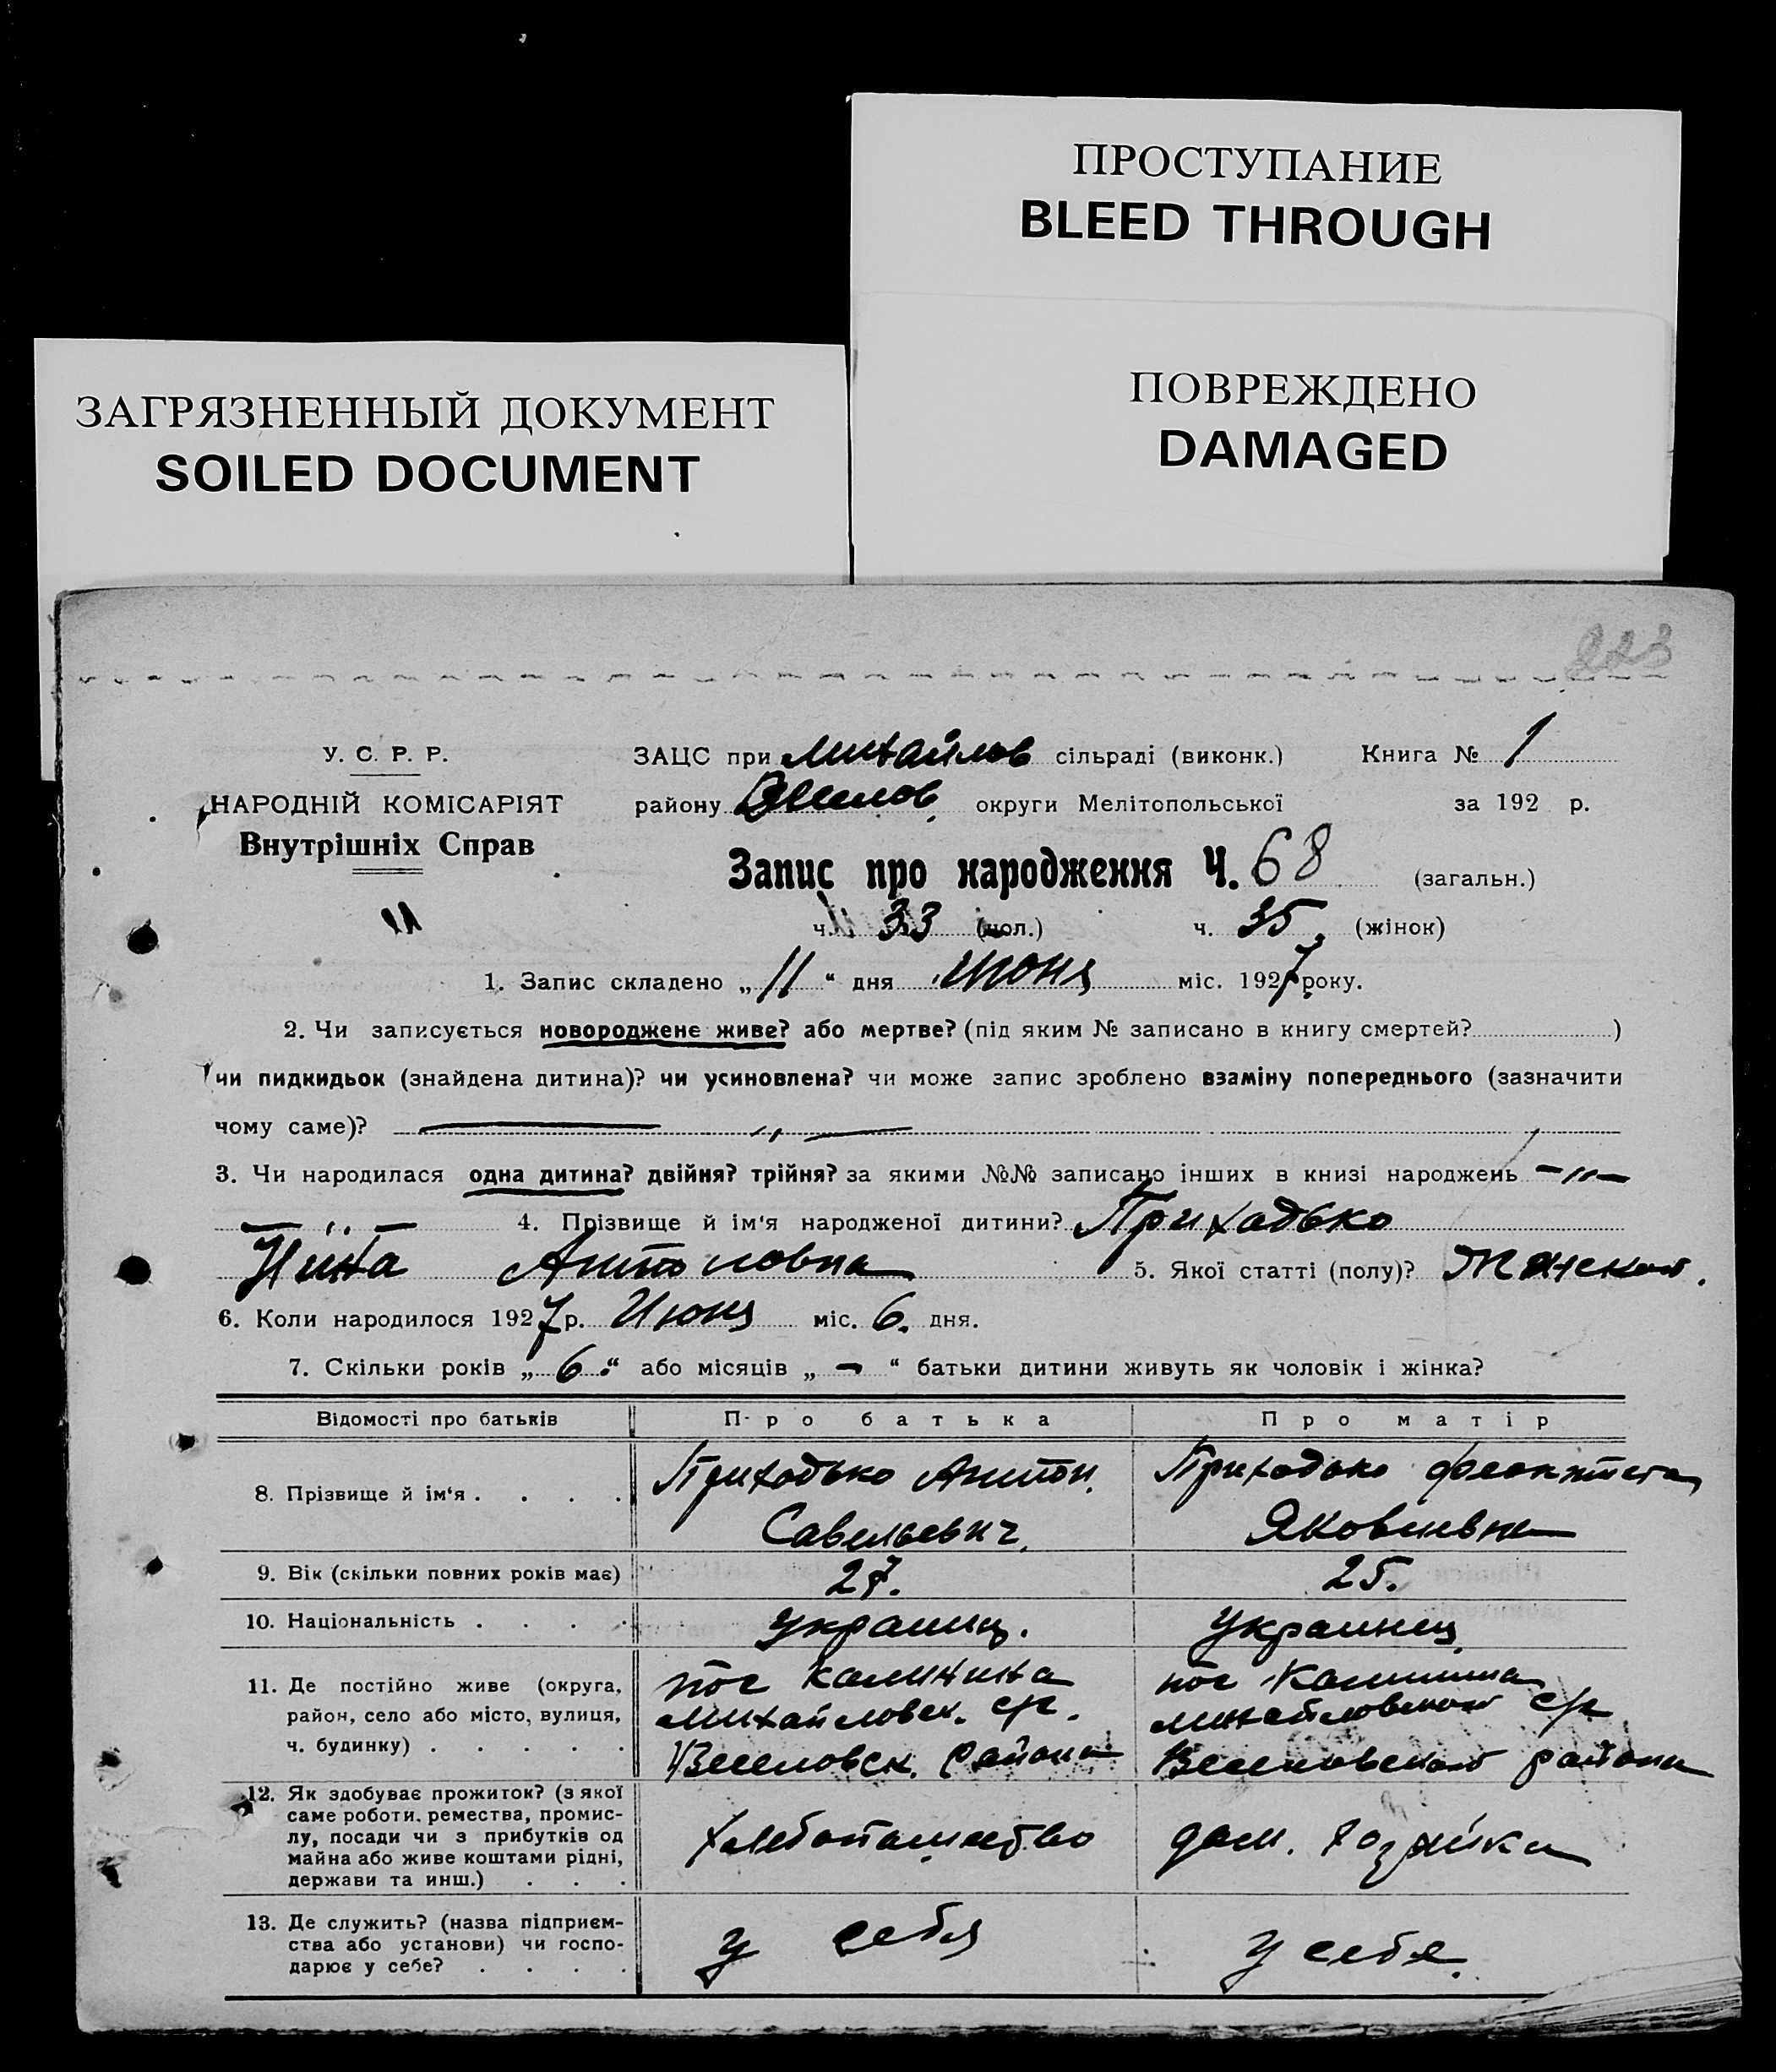 ПРОСТУПАНИЕ
BLEED THROUGH
ПОВРЕЖДЕНО
DAMAGED
ЗАГРЯЗНЕННЫЙ ДОКУМЕНТ
SOILED DOCUMENT
223
У. С. Р. Р.
НАРОДНІЙ КОМІСАРІЯТ
Внутрішніх Справ
11
ЗАЦС при Михайлов сільраді (виконк.) Книга № 1
району Веселов. округи Мелітопольської за 192 р.
Запис про народження Ч. 68 (загальн.)
ч. 33 (чол.) ч. 35. (жінок)
1. Запис складено „11“ дня Июня міс. 1927 року.
2. Чи записується новороджене живе? або мертве? (під яким № записано в книгу смертей? )
чи пидкидьок (знайдена дитина)? чи усиновлена? чи може запис зроблено взаміну попереднього (зазначити
чому саме)? — „ —
3. Чи народилася одна дитина? двійня? трійня? за якими №№ записано інших в книзі народжень -"-
- " - 4. Прізвище й ім'я народженої дитини? Приходько
Нина Антоновна 5. Якої статті (полу)? Женской.
6. Коли народилося 1927 р. Июня міс. 6. дня.
7. Скільки років „6.“ або місяців „-“ батьки дитини живуть як чоловік і жінка?
Відомості про батьків Про батька Про матір
8. Прізвище й ім'я . . . . Приходько Антон. Приходько Феоктиста
Савельевич. Яковлевна
9. Вік (скільки повних років має) 27. 25.
10. Національність . . . . Украинц. Украинец
11. Де постійно живе (округа, район, село або місто, вулиця, ч. будинку) . . . . .
пос Калинина
Михайловск. с/с.
Веселовск. района
пос Калинина
Михайловской с/с
Веселовского района
12. Як здобуває прожиток? (з якої
саме роботи, ремества, промис-
лу, посади чи з прибутків од
майна або живе коштами рідні,
держави та инш.) . . .
хлебопашество дом. хозяйка
13. Де служить? (назва підприєм-
ства або установи) чи госпо-
дарює у себе? . . . .
у себя у себя.